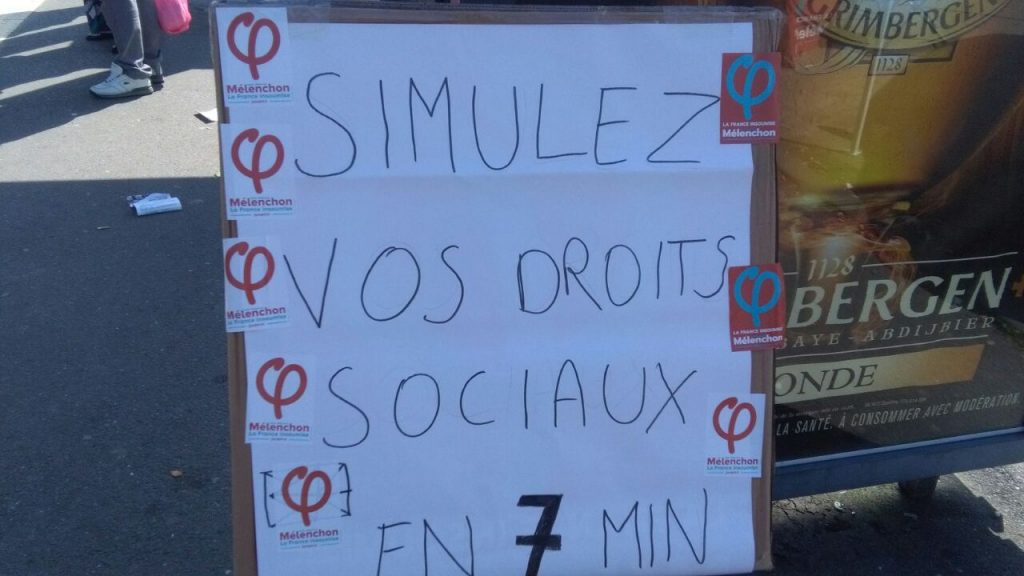 SIMULEZ
VOS DROITS
SOCIAUX
EN 7 MIN
φ
Mélenchon
La France insoumise
φ
Mélenchon
La France insoumise
φ
Mélenchon
La France insoumise
φ
Mélenchon
La France insoumise
φ
Mélenchon
φ
LA FRANCE INSOUMISE
Mélenchon
φ
LA FRANCE INSOUMISE
Mélenchon
φ
Mélenchon
La France insoumise
GRIMBERGEN
1128
1128
BERGEN
ABDIJBIER
ONDE
LA SANTÉ. À CONSOMMER AVEC MODÉRATION.